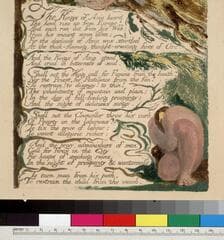 The Kings of Asia heard
The howl rise up from Europe!
And each ran out from his Web;
From his ancient woven Den;
For the darkness of Asia was startled
At the thick-flaming, thought-creating fires of Orc.
And the Kings of Asia stood
And cried in bitterness of soul.
Shall not the King call for Famine from the heath?
Nor the Priest, for Pestilence from the fen?
To restrain! to dismay! to thin!
The inhabitants of mountain and plain;
In the day, of full-feeding prosperity;
And the night of delicious songs.
Shall not the Councellor throw his curb
Of Poverty on the laborious?
To fix the price of labour;
To invent allegoric riches:
And the privy admonishers of men
Call for fires in the City
For heaps of smoking ruins,
In the night of prosperity & wantonness
To turn man from his path,
To restrain the child from the womb,